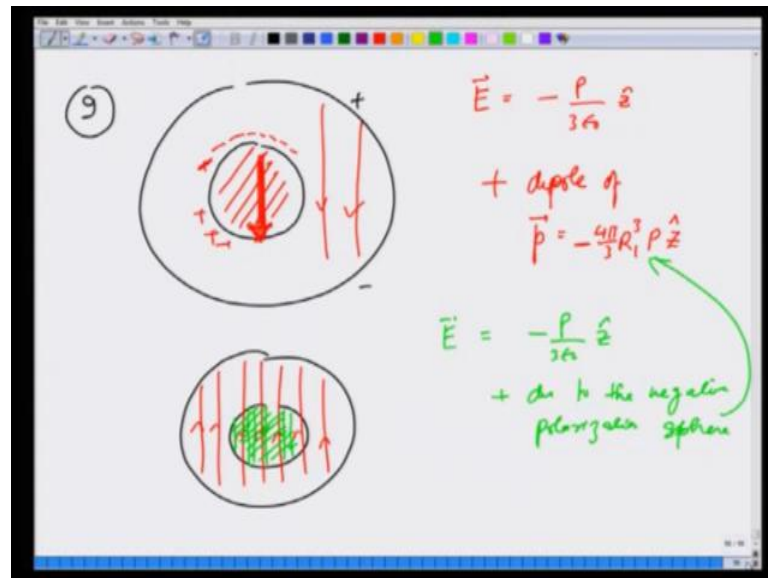 File Edit View Insert Actions Tools Help
9
+
-
+
+
+
E⃗ = - P/3ε₀ ẑ
+ dipole of
p⃗ = - 4π/3 R₁³ P ẑ
E⃗ = - P/3ε₀ ẑ
+ due to the negative
polarization sphere